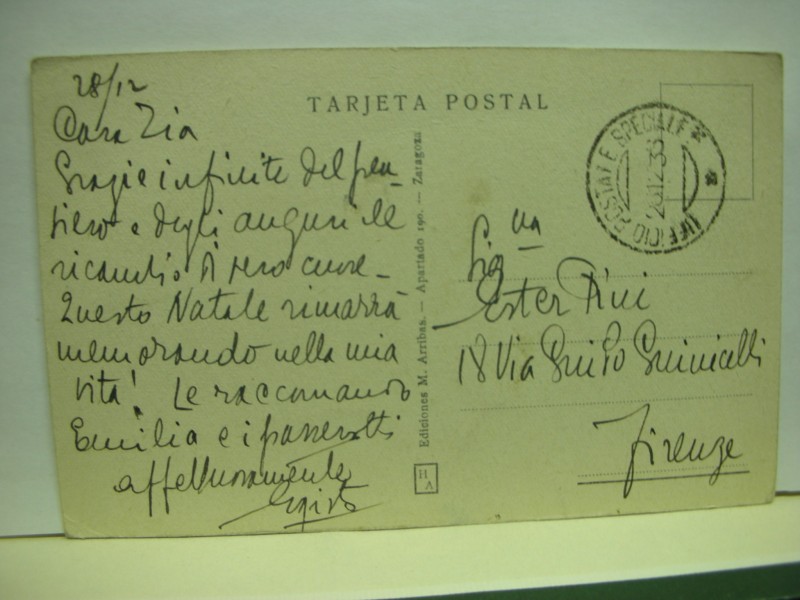 28/12
TARJETA POSTAL
Cara Zia
Grazie infinite del pen-
siero e degli auguri le
ricambio di vero cuore -
Questo Natale rimarrà
memorando nella mia
vita! Le raccomando
Emilia e i passerotti
affettuosamente
Egisto
Ediciones M. Arribas. — Apartado 190. — Zaragoza
HA
UFFICIO POSTALE SPECIALE
Sigᵃ
Ester Pini
18 Via Guido Guinicelli
Firenze